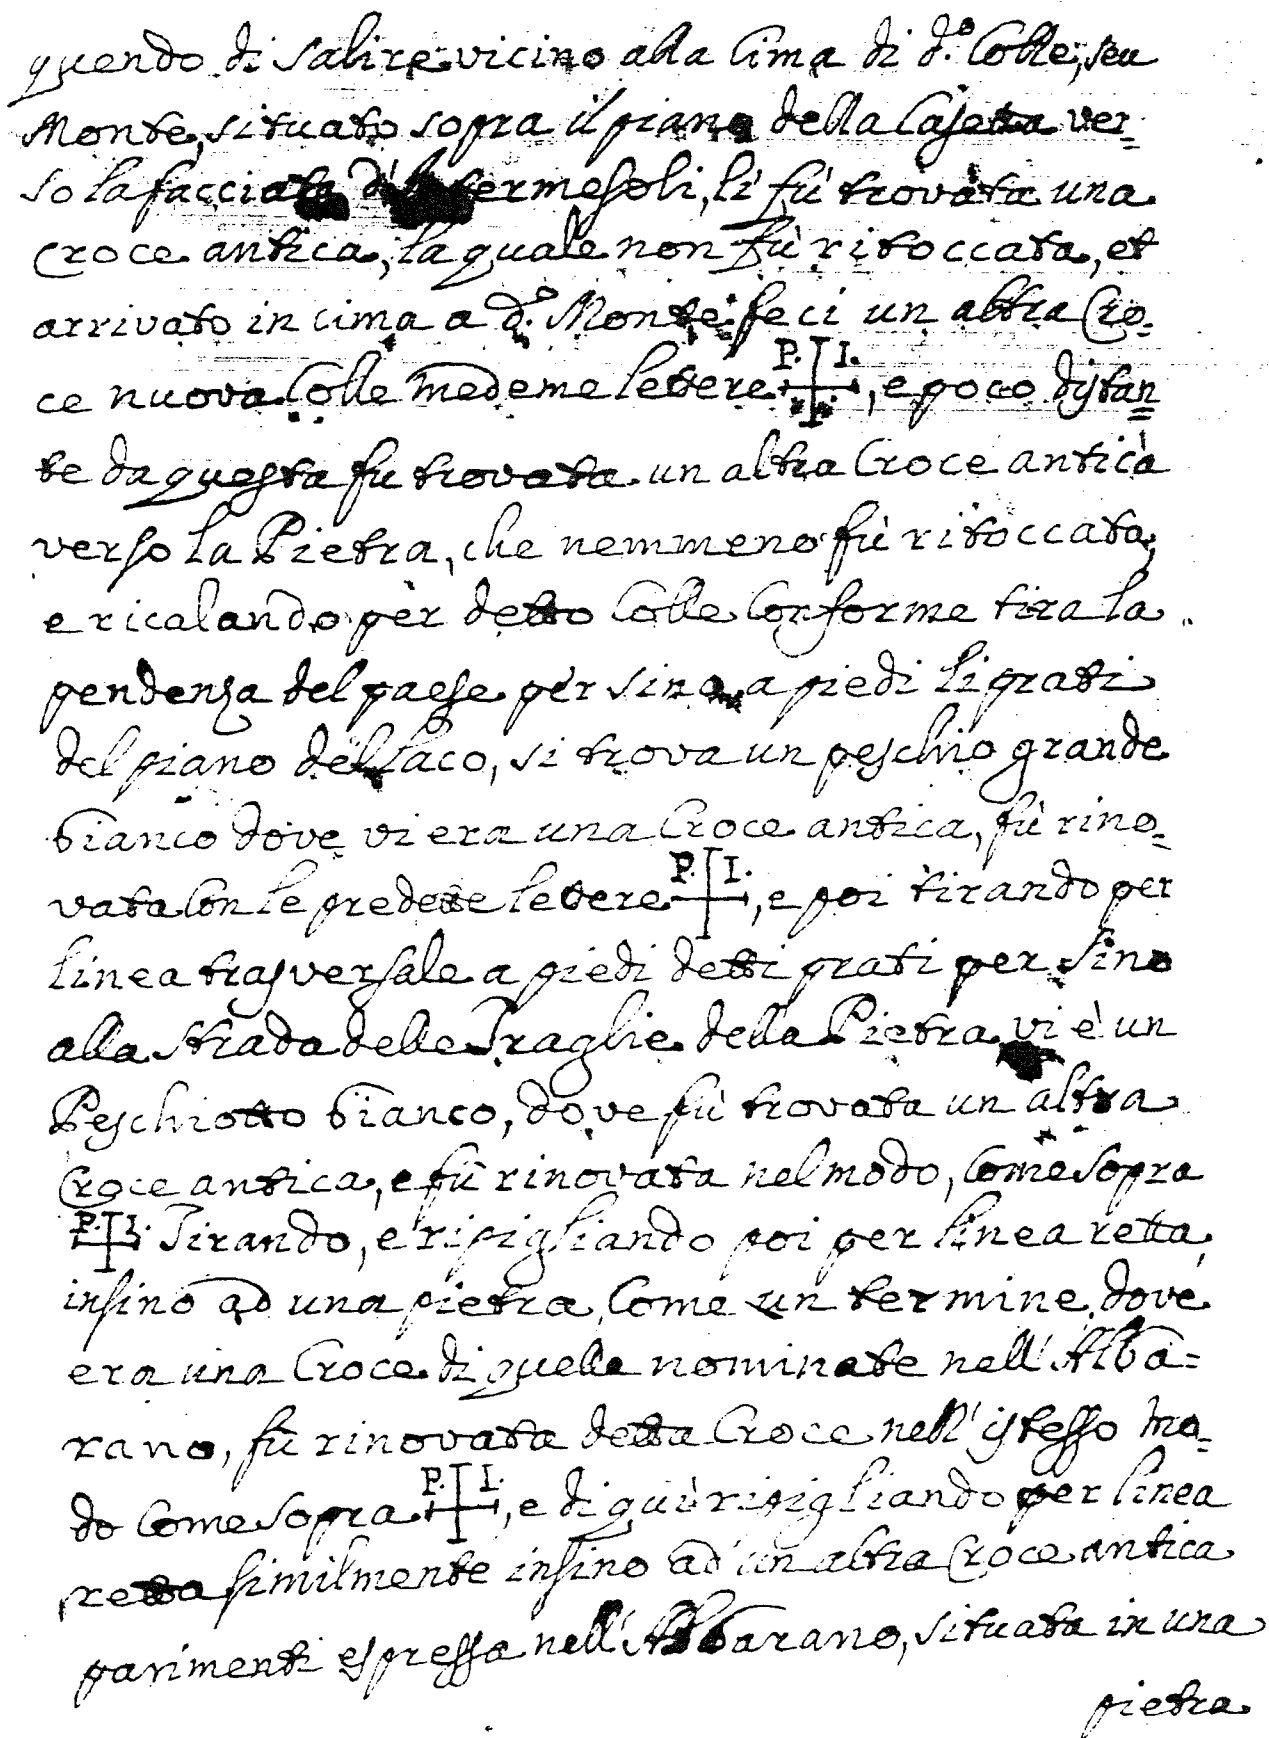 quendo di salire vicino alla Cima di d.º Colle, seu
Monte, situato sopra il piano della Casetta ver-
so la facciata d'Intermesoli, lì fù trovata una
Croce antica, la quale non fù ritoccata, et
arrivato in cima a d.º Monte feci un altra Cro-
ce nuova Colle medeme lettere P. I., e poco distan
te da questa fu trovata un altra Croce antica
verso la Pietra, che nemmeno fù ritoccata,
e ricalando per detto Colle Conforme tira la
pendenza del paese per sino a piedi li prati
del piano del Laco, si trova un peschio grande
bianco dove vi era una Croce antica, fù rino-
vata Con le predette lettere P. I., e poi tirando per
linea trasversale a piedi detti prati per sino
alla strada delle Traglie della Pietra vi è un
Peschiotto bianco, dove fù trovata un altra
Croce antica, e fù rinovata nel modo, Come sopra
P. I. Tirando, e ripigliando poi per linea retta
insino ad una pietra Come un termine, dove
era una Croce di quelle nominate nell'Alba-
rano, fù rinovata detta Croce nell'istesso mo-
do Come sopra P. I., e di qui ripigliando per linea
retta similmente insino ad un altra Croce antica
parimenti espressa nell'Albarano, situata in una
pietra